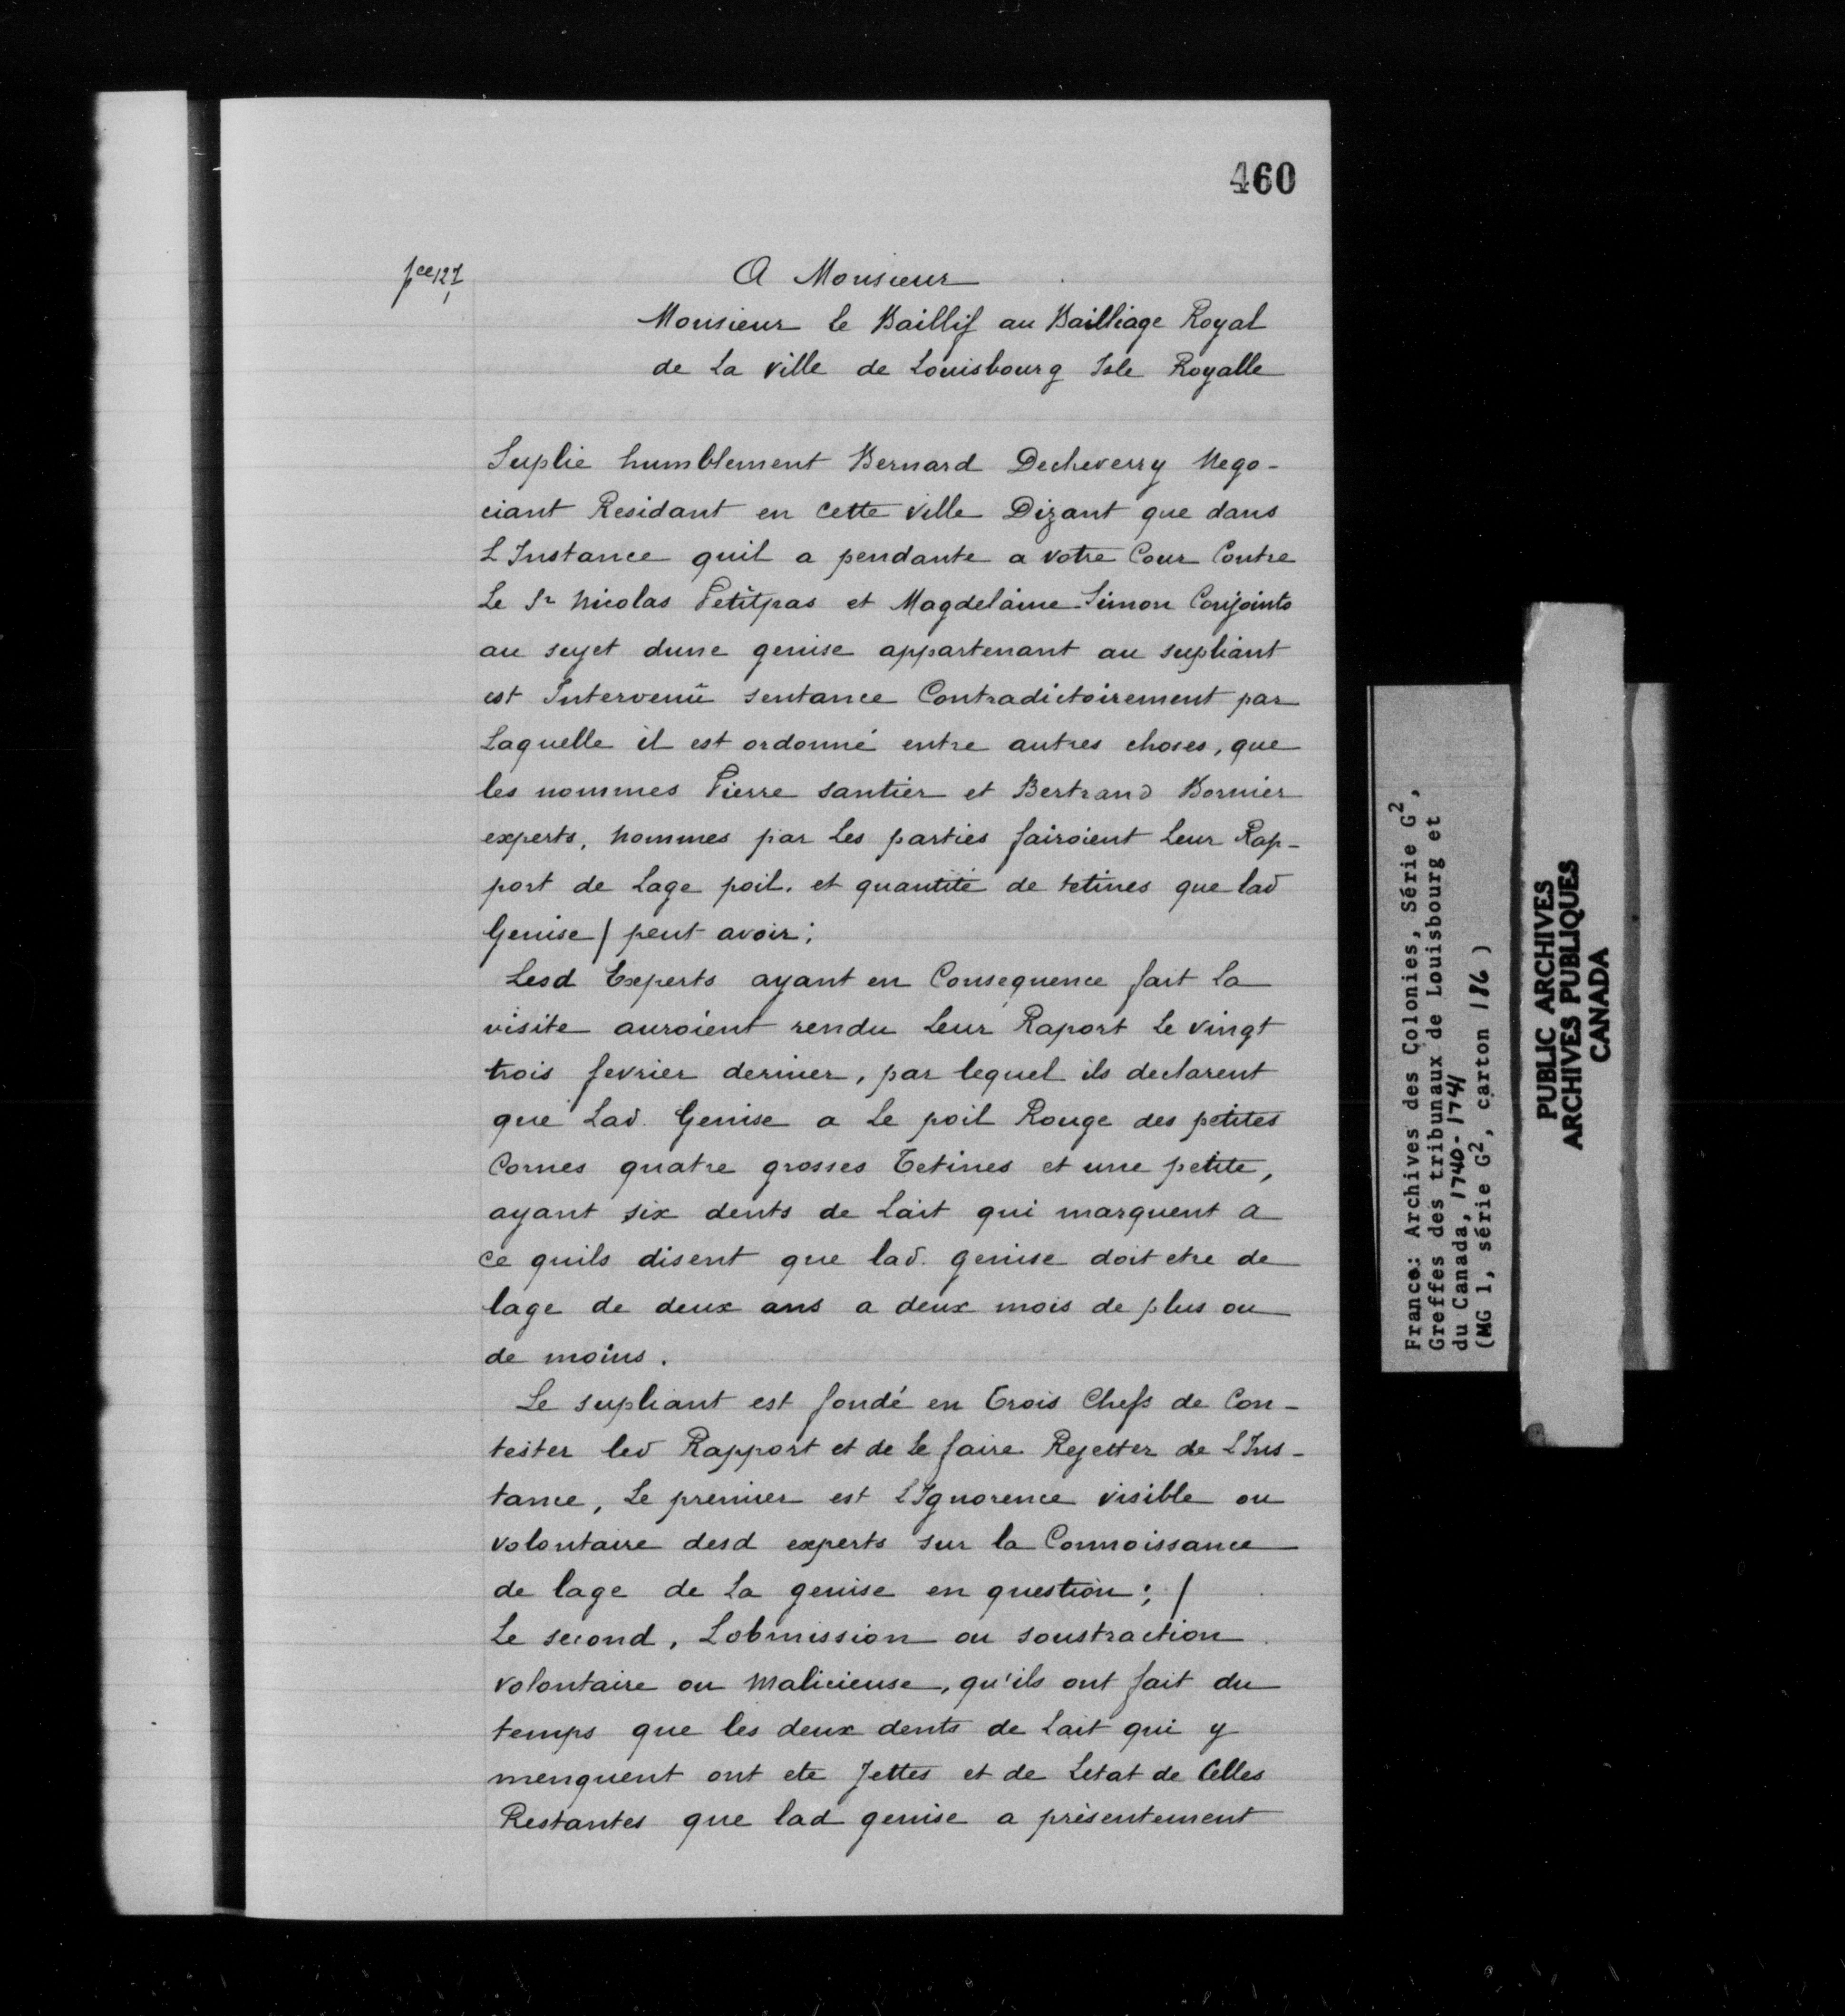 460
pce 127
A Monsieur
Monsieur le Baillif au Bailliage Royal
de La ville de Louisbourg Isle Royalle
Suplie humblement Bernard Decheverry Nego-
ciant Residant en cette ville Dizant que dans
L Instance quil a pendante a votre Cour Contre
Le Sr Nicolas Petitpas et Magdelaine Simon Conjoints
au sujet dune genise appartenant au supliant
est Intervenü sentance Contradictoirement par
Laquelle il est ordonné entre autres choses, que
les nommes Pierre santier et Bertrand Bornier
experts, nommes par Les parties fairoient Leur Rap-
port de Lage poil. et quantité de tetines que lad
Genise / peut avoir;
Lesd Experts ayant en Consequence fait la
visite auroient rendu Leur Raport Le vingt
trois fevrier dernier, par lequel ils declarent
que Lad. Genise a Le poil Rouge des petites
Cornes quatre grosses Tetines et une petite,
ayant six dents de Lait qui marquent a
ce quils disent que lad. genise doit etre de
lage de deux ans a deux mois de plus ou
de moins.
Le supliant est fondé en Trois Chefs de Con-
tester led Rapport et de Le faire Rejetter de L'Ins-
tance, Le premier est L'Ignorence visible ou
volontaire desd experts sur la Connoissance
de lage de La genise en question; /
Le second, Lobmission ou soustraction
volontaire ou malicieuse, qu'ils ont fait du
temps que les deux dents de Lait qui y
menquent ont ete Jettes et de Letat de Celles
Restantes que lad genise a présentement
France: Archives des Colonies, Série G2,
Greffes des tribunaux de Louisbourg et
du Canada, 1740-1741
(MG 1, série G2, carton 186 )
PUBLIC ARCHIVES
ARCHIVES PUBLIQUES
CANADA